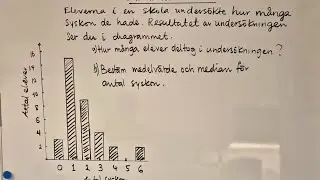 Eleverna i en skola undersökte hur många
syskon de hade. Resultatet av undersökningen
Ser du i diagrammet.
a) Hur många elever deltog i undersökningen?
b) Bestäm medelvärde och median för
antal syskon.
Antal elever
16
14
12
10
8
6
4
2
0 1 2 3 4 5 6